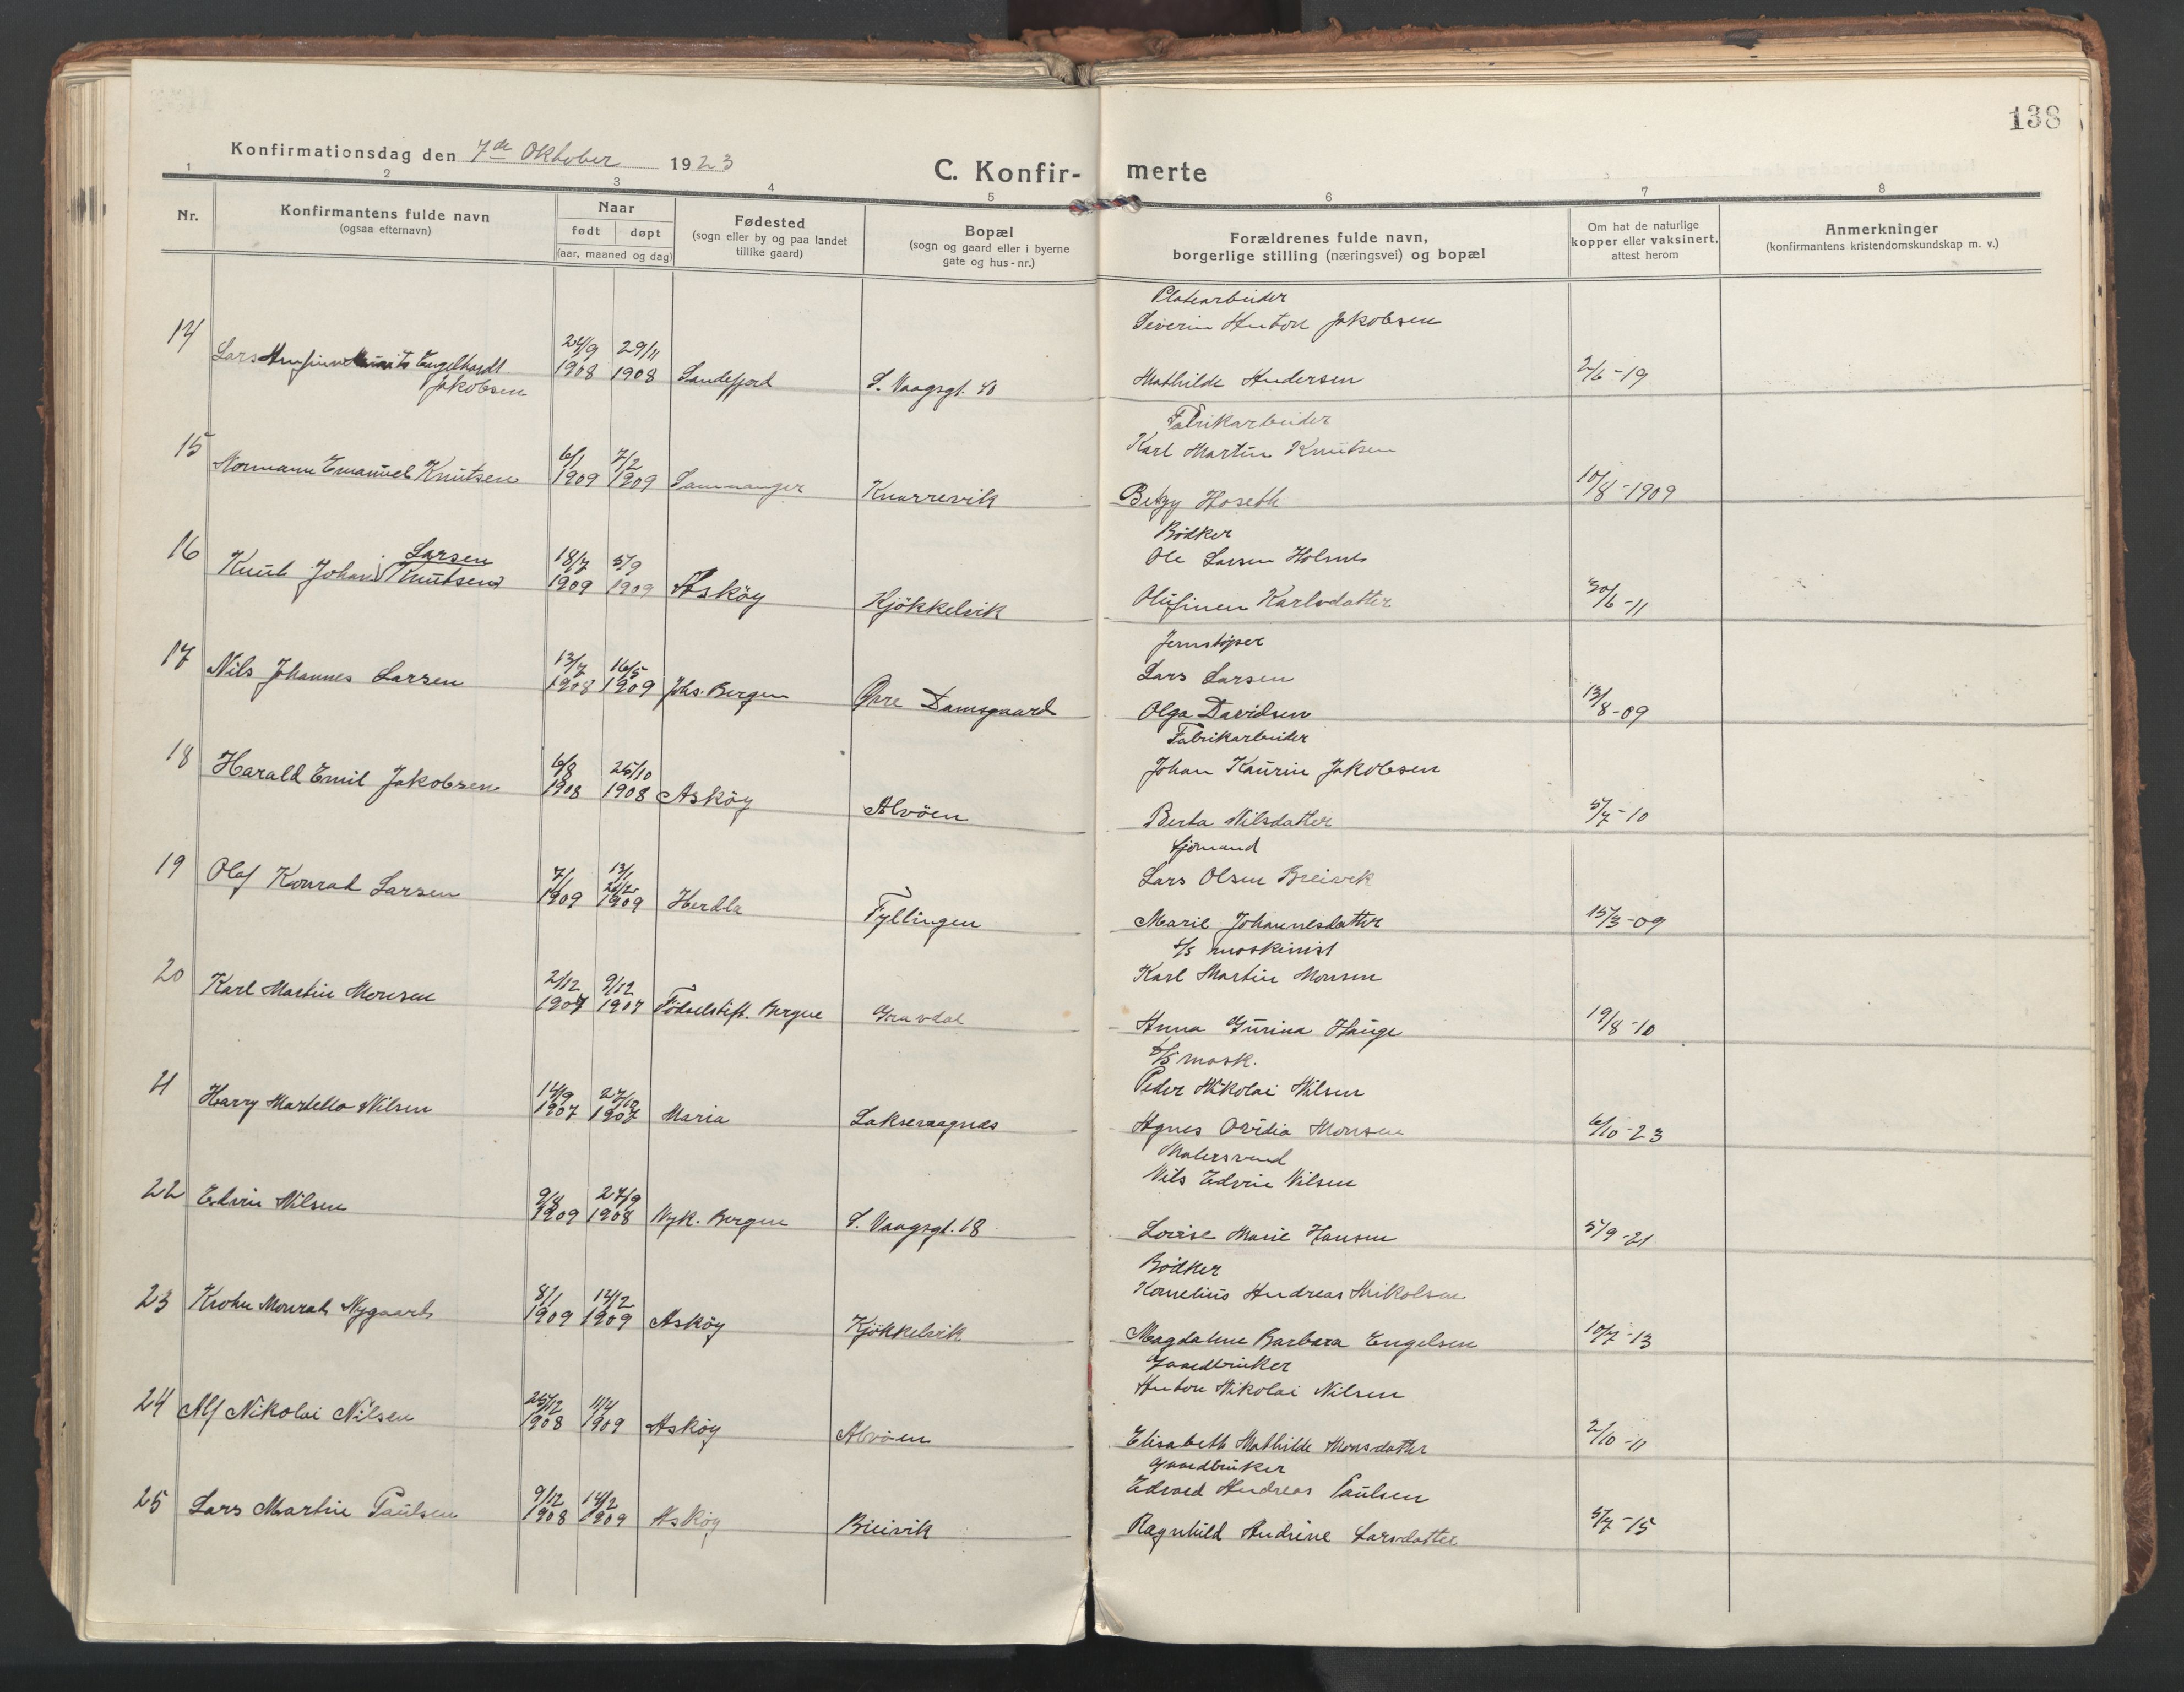 138
Konfirmationsdag den 7de Oktober 1923
C. Konfir- merte
1 2 3 4 5 6 7 8
Nr.
Konfirmantens fulde navn
(ogsaa efternavn)
Naar
født døpt
(aar, maaned og dag)
Fødested
(sogn eller by og paa landet
tillike gaard)
Bopæl
(sogn og gaard eller i byerne
gate og hus-nr.)
Forældrenes fulde navn,
borgerlige stilling (næringsvei) og bopæl
Om hat de naturlige
kopper eller vaksinert,
attest herom
Anmerkninger
(konfirmantens kristendomskundskap m. v.)
Platearbeider
Severin Anton Jakobsen
14 Lars Engelhardt 24/9 29/11
Jakobsen 1908 1908 Sandefjord S. Vaagsgt. 40 Mathilde Andersen 2/6-19
Fabrikarbeider
Karl Martin Knutsen
15 Normann Emanuel Knutsen 6/1 7/2
1909 1909 Samnanger Knarrevik Betzy Hoseth 10/8-1909
Bödker
Ole Larsen Holmes
16 Larsen
Knut Johan (Knutsen) 18/7 5/9
1909 1909 Asköy Kjökkelvik Olufinen Karlsdatter 30/6-11
Jernstöper
Lars Larsen
17 Nils Johannes Larsen 13/7 16/5
1908 1909 Johs. Bergen Övre Damsgaard Olga Davidsen 13/8-09
Fabrikarbeider
Johan Kaurin Jakobsen
18 Harald Emil Jakobsen 6/8 25/10
1908 1908 Asköy Alvöen Berta Nilsdatter 5/7-10
Sjömand
Lars Olsen Breivik
19 Olaf Konrad Larsen 7/1 13/1
21/2
1909 1909 Herdla Fyllingen Marie Johannesdatter 15/3-09
s/s maskinist
Karl Martin Monsen
20 Karl Martin Monsen 2/12 9/12
1907 1907 Födselstift. Bergen Gravdal Anna Gurina Hauge 19/8-10
s/s mask.
Peder Nikolai Nilsen
21 Harry Martello Nilsen 14/9 27/10
1907 1907 Maria Laksevaagnæs Agnes Ovidia Monsen 6/10-23
Malersvend
Nils Edvin Nilsen
22 Edvin Nilsen 9/8 27/9
1909 1908 Nyk. Bergen S. Vaagsgt. 18 Lovise Marie Hansen 5/9-21
Bödker
Kornelius Andreas Mikalsen
23 Krohn Monrad Nygaard 8/1 14/2
1909 1909 Asköy Kjökkelvik Magdalene Barbara Engelsen 10/7-13
Gaardbruker
Anton Nikolai Nilsen
24 Alf Nikolai Nilsen 25/12 11/4
1908 1909 Asköy Alvöen Elisabeth Mathilde Monsdatter 2/10-11
Gaardbruker
Edvard Andreas Paulsen
25 Lars Martin Paulsen 9/12 14/2
1908 1909 Asköy Breivik Ragnhild Andrine Larsdatter 5/7-15